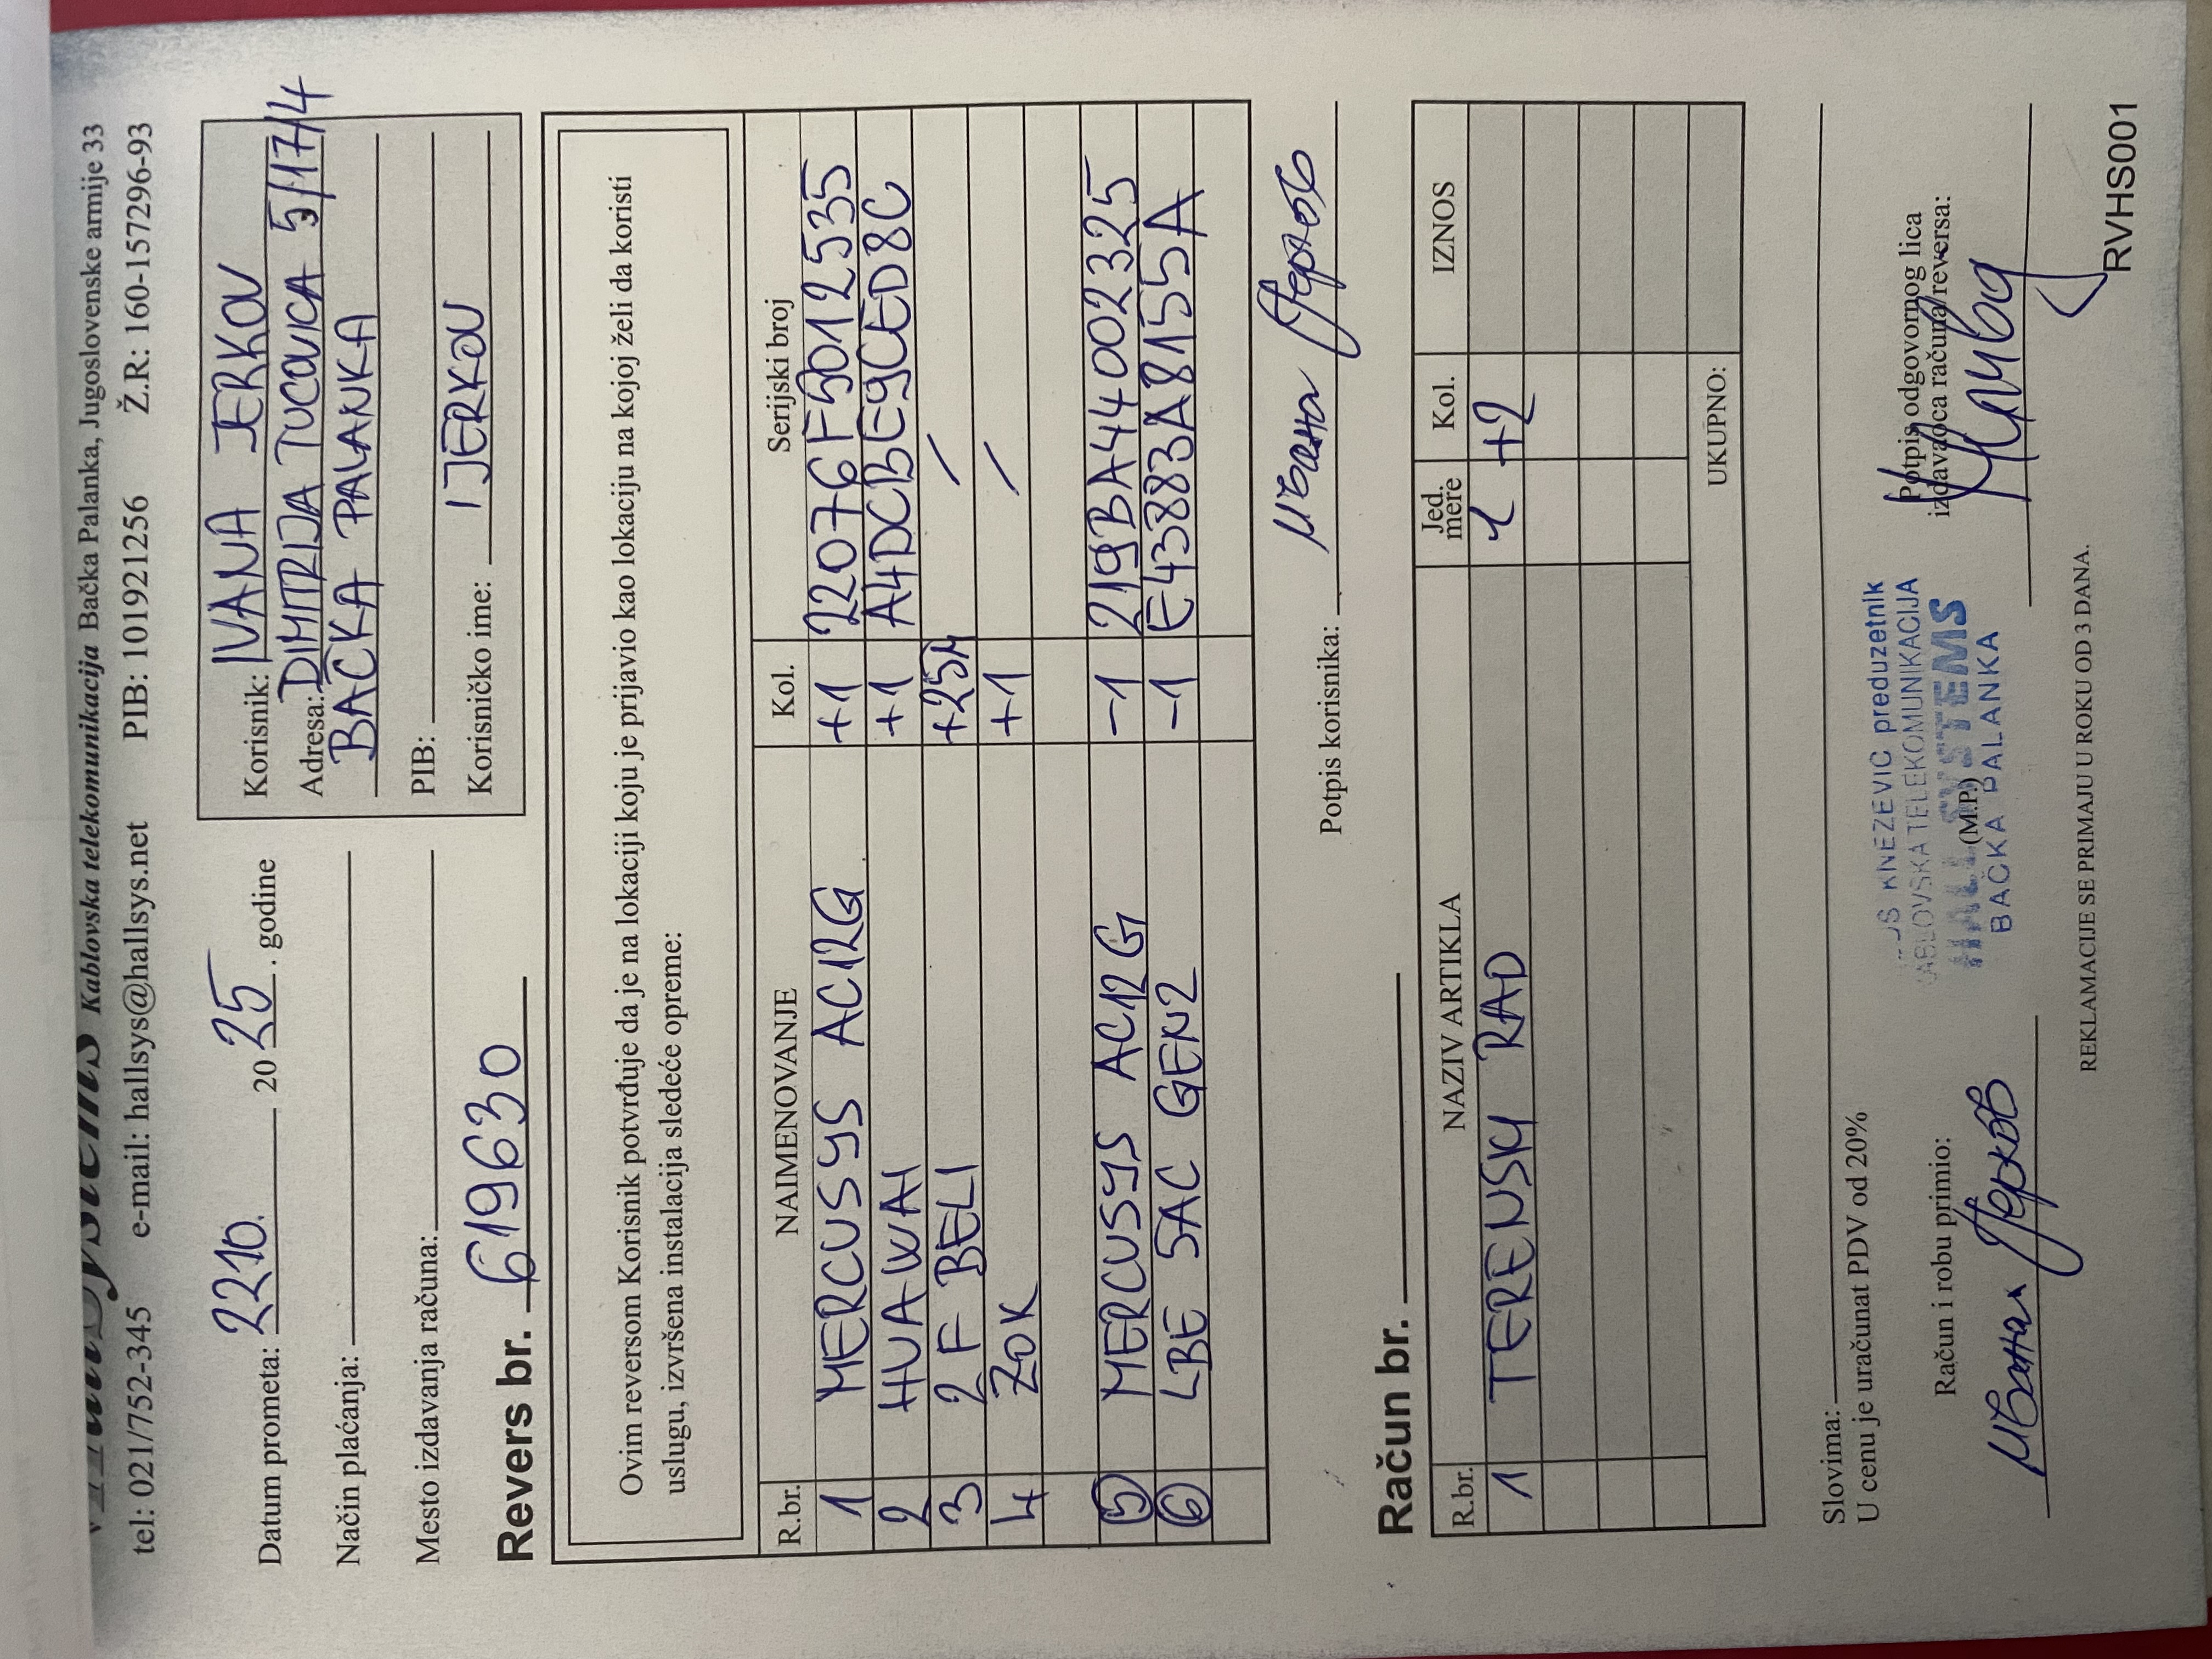 Kablovska telekomunikacija Bačka Palanka, Jugoslovenske armije 33
tel: 021/752-345 e-mail: hallsys@hallsys.net PIB: 101921256 Ž.R: 160-157296-93
Datum prometa: 2210. 2025. godine
Način plaćanja:
Mesto izdavanja računa:
Revers br. 619630
Korisnik: IVANA JERKOV
Adresa: DIMITRIJA TUCOVICA 5/17/4
BAČKA PALANKA
PIB:
Korisničko ime: IJERKOV
Ovim reversom Korisnik potvrđuje da je na lokaciji koju je prijavio kao lokaciju na kojoj želi da koristi
uslugu, izvršena instalacija sledeće opreme:
R.br. NAIMENOVANJE Kol. Serijski broj
1 MERCUSYS AC12G +1 22076F5012535
2 HUAWAI +1 A4DCBE9CED8C
3 2F BELI +25M /
4 ZOK +1 /
5 MERCUSYS AC12G -1 219BA44002325
6 LBE 5AC GEN2 -1 E43883A8155A
Potpis korisnika: Ивана Јерков
Račun br.
R.br. NAZIV ARTIKLA Jed. mere Kol. IZNOS
1 TERENSKI RAD +2
UKUPNO:
Slovima:
U cenu je uračunat PDV od 20%
Račun i robu primio:
Ивана Јерков
KNEZEVIC preduzetnik
KABLOVSKA TELEKOMUNIKACIJA
HALL SYSTEMS
(M.P.)
BAČKA PALANKA
Potpis odgovornog lica
izdavaoca računa/reversa:
REKLAMACIJE SE PRIMAJU U ROKU OD 3 DANA.
RVHS001